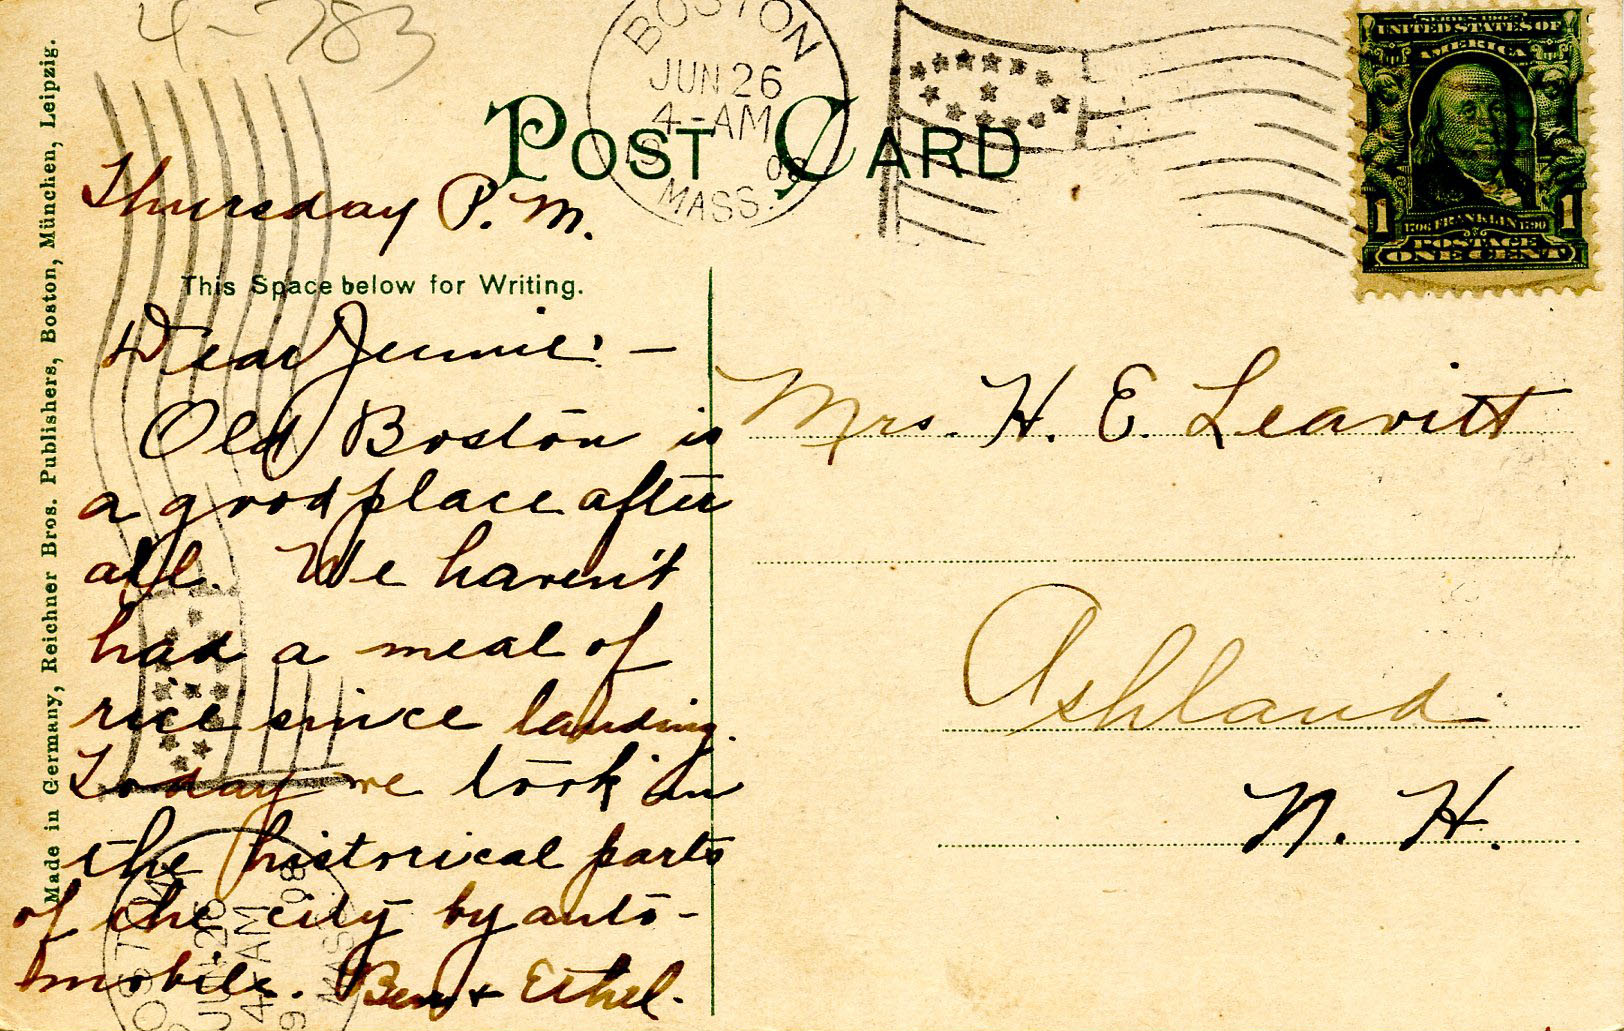 4-783
BOSTON
JUN 26
4-AM
08
MASS.
POST CARD
UNITED STATES OF
AMERICA
1 1706 FRANKLIN 1790 1
POSTAGE
ONE CENT
Made in Germany, Reichner Bros. Publishers, Boston, München, Leipzig.
Thursday P.M.
This Space below for Writing.
Dear Jennie: —
Old Boston is
a good place after
all. We haven't
had a meal of
rice since landing.
Today we took in
the historical parts
of the city by auto-
mobile. Ben + Ethel.
Mrs. H. E. Leavitt
Ashland
N. H.
BOSTON
JUN 26
4-AM
1908
MASS.